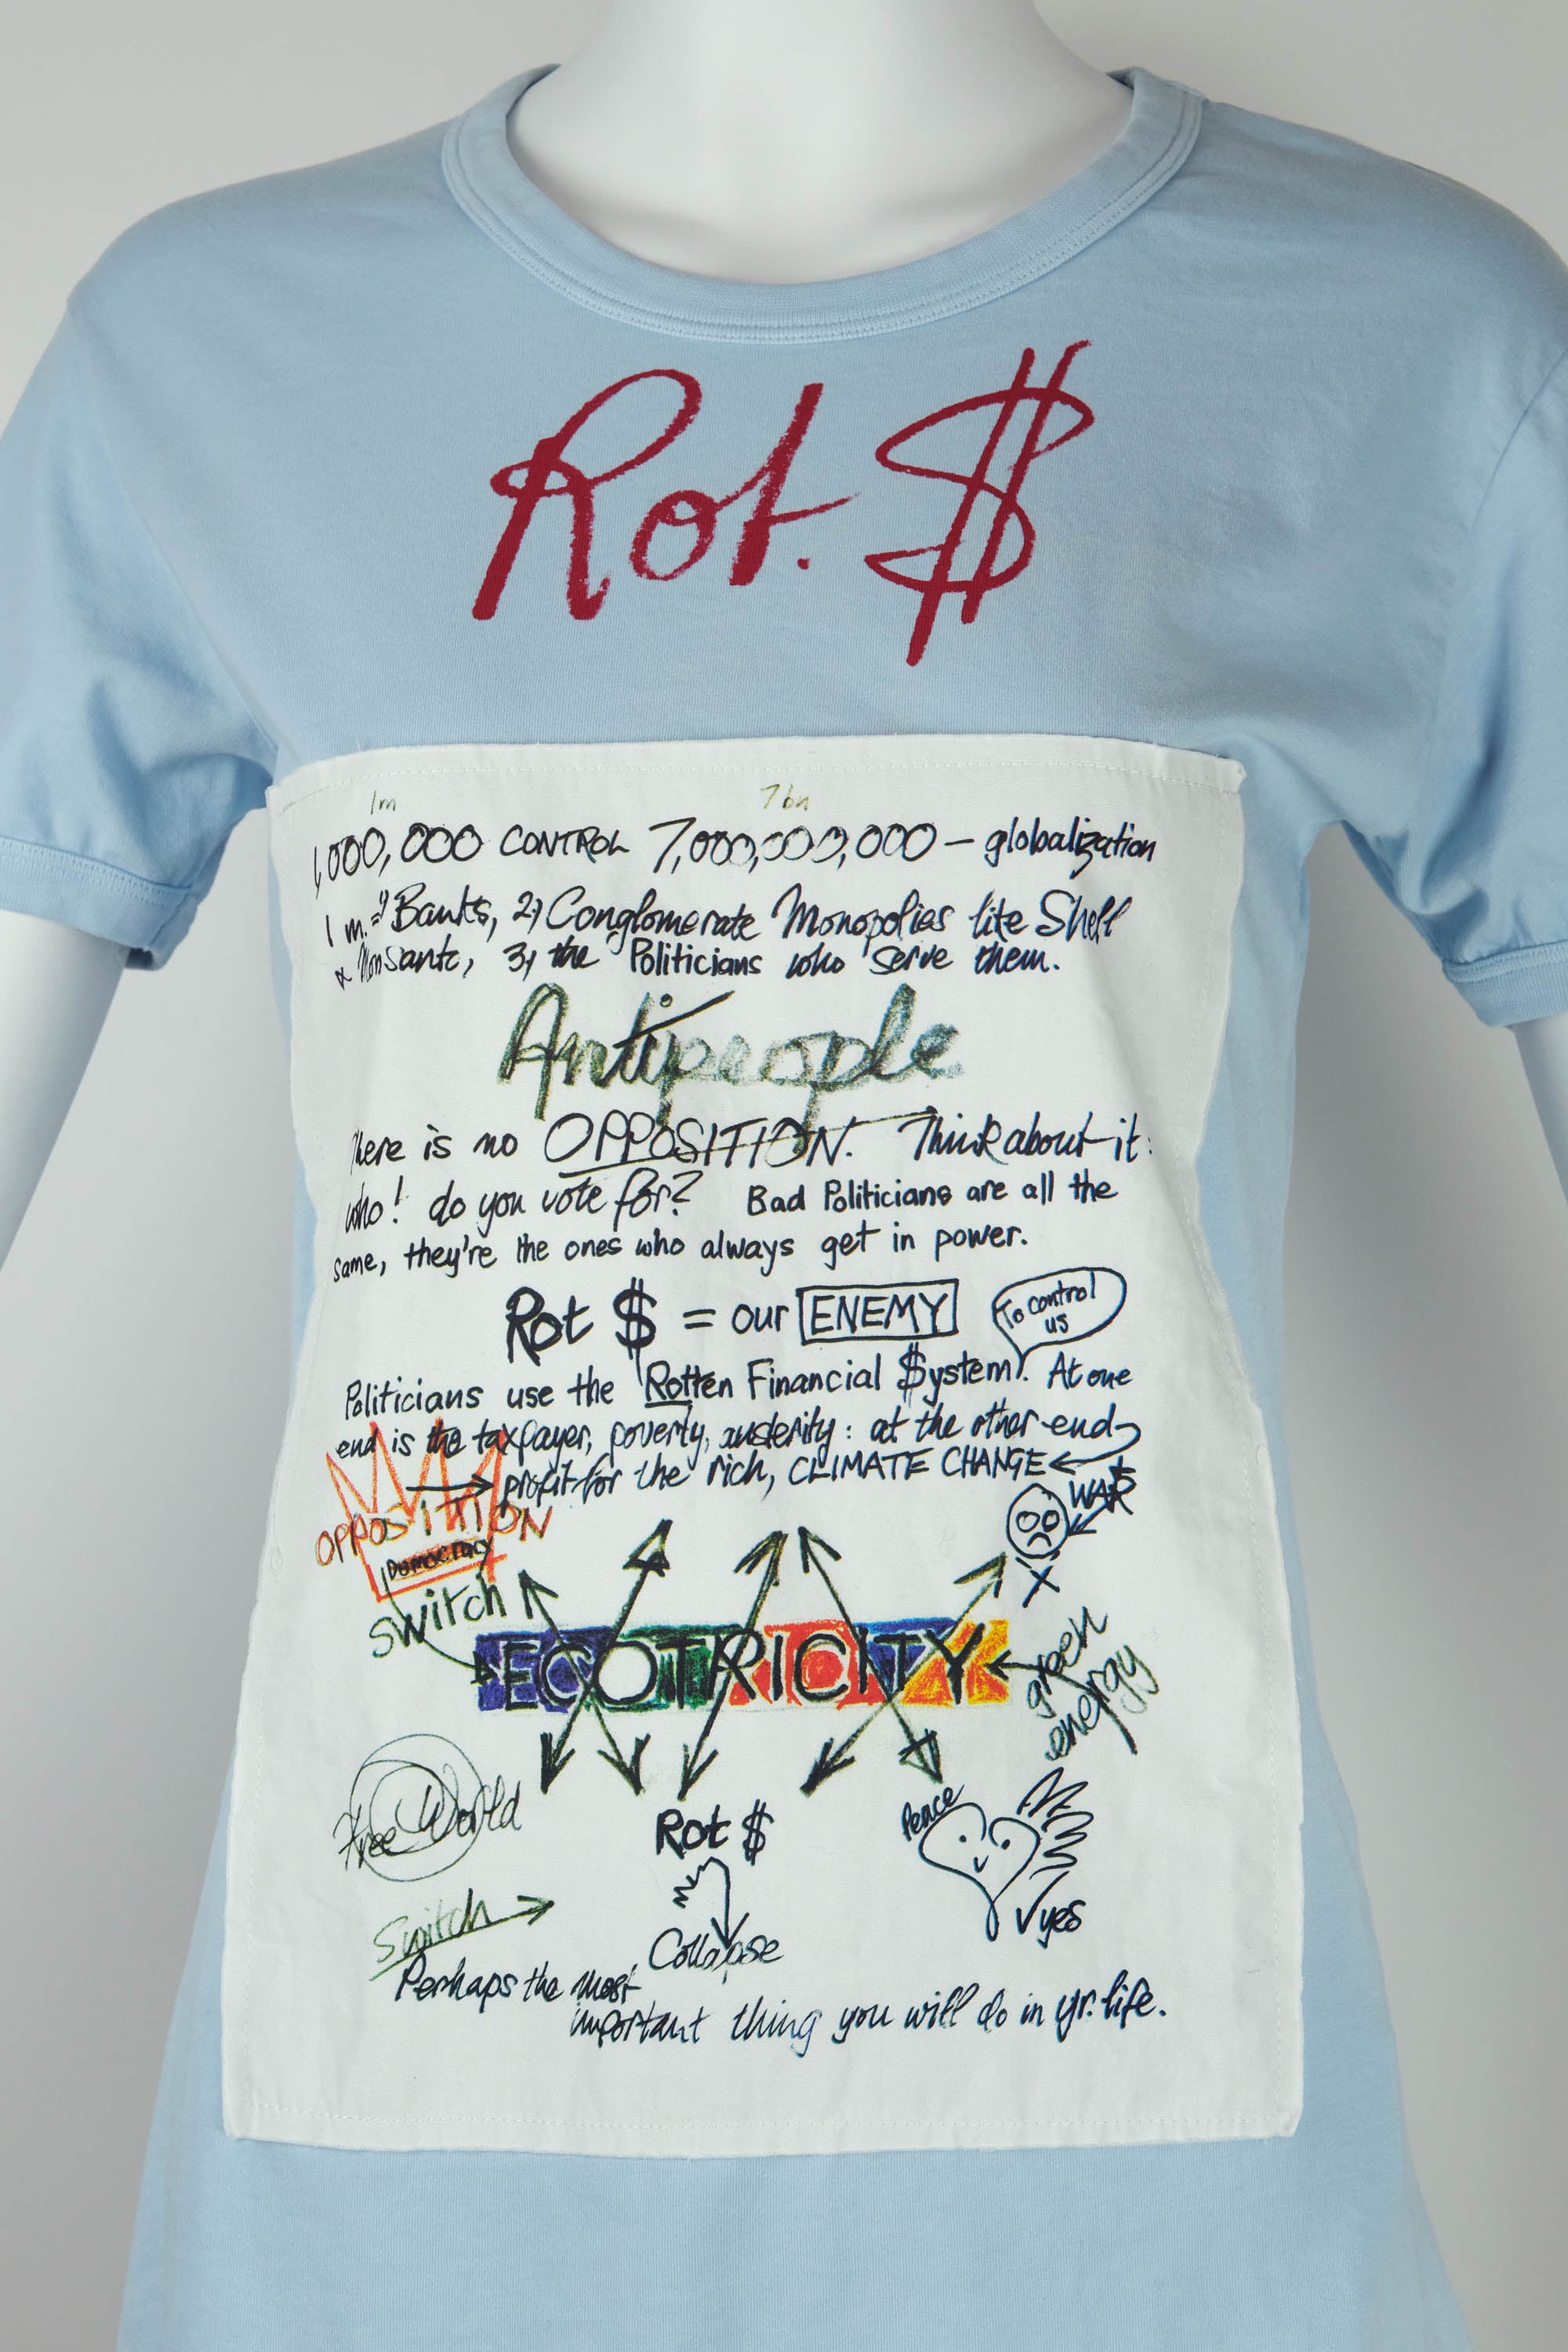 Rot. $
1m 7bn
1,000,000 CONTROL 7,000,000,000 – globalization
1 m. = 1) Banks, 2) Conglomerate Monopolies like Shell
& Monsanto, 3) the Politicians who serve them.
Antipeople
There is no OPPOSITION. Think about it:
who! do you vote for? Bad Politicians are all the
same, they're the ones who always get in power.
Rot $ = our ENEMY
To control
us
Politicians use the Rotten Financial $ystem. At one
end is the taxpayer, poverty, austerity: at the other end
profit for the rich, CLIMATE CHANGE
+ WAR
OPPOSITION
Democracy
Switch
X
ECOTRICITY
green
energy
Free World
Rot $
Peace
Switch
Collapse
✓yes
Perhaps the most
important thing you will do in yr. life.